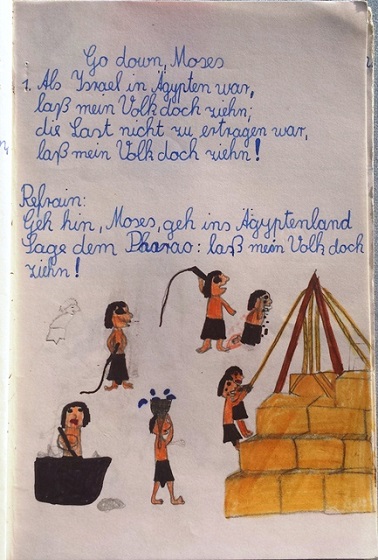 Go down, Moses
1. Als Israel in Ägypten war,
laß mein Volk doch ziehn;
die Last nicht zu ertragen war,
laß mein Volk doch ziehn!
Refrain:
Geh hin, Moses, geh ins Ägyptenland
Sage dem Pharao: laß mein Volk doch
ziehn!